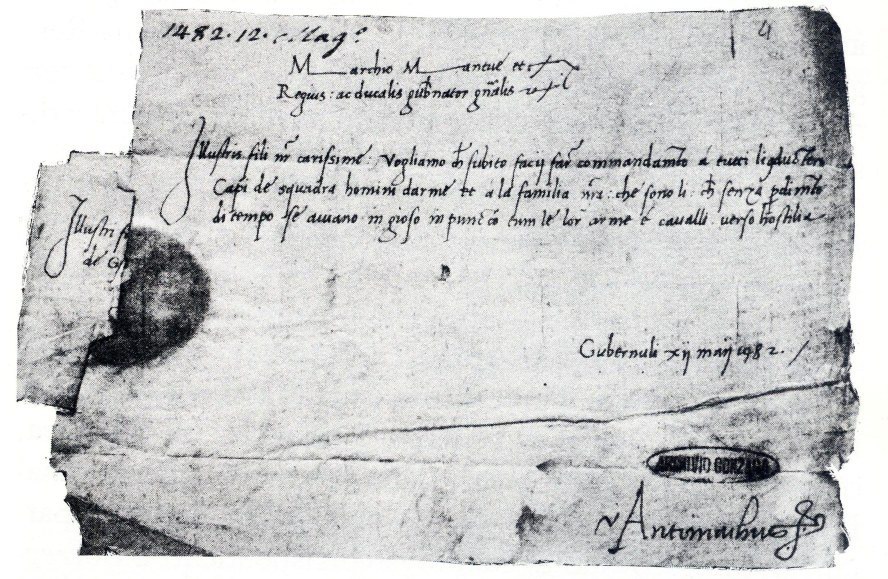 1482.12. Magº
4
Marchio Mantue etc
Regius: ac ducalis gub̃nator gñalis
Illustris fili nr̃ carissime: Vogliamo ch̃ subito facij far commandamto a tucti li
Capi de squadra homini darme et a la familia nr̃a: che sono li: ch̃ senza ꝑdimto
di tempo se aviano in gioso in puncto cum le lor arme e cavalli verso hostilia
Illustri
de
Gubernuli xij maij 1482. /
ARCHIVIO GONZAGA
Antimachus